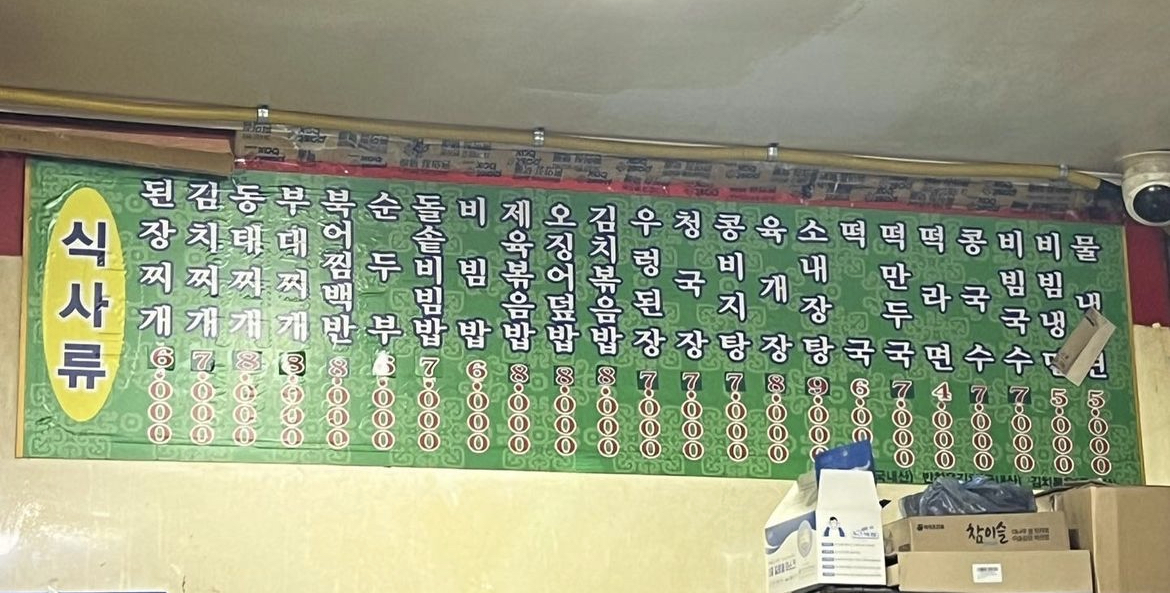 식사류
된장찌개 6,000
김치찌개 7,000
동태찌개 8,000
부대찌개 8,000
북어찜백반 8,000
순두부
돌솥비빔밥 7,000
비빔밥 6,000
제육볶음밥 8,000
오징어덮밥 8,000
김치볶음밥 8,000
우렁된장 7,000
청국장 7,000
콩비지탕 7,000
육개장 8,000
소내장탕 9,000
떡국 6,000
떡만두국 7,000
떡라면 4,000
콩국수 7,000
비빔국수 7,000
비빔냉면 5,000
물냉면 5,000
참이슬